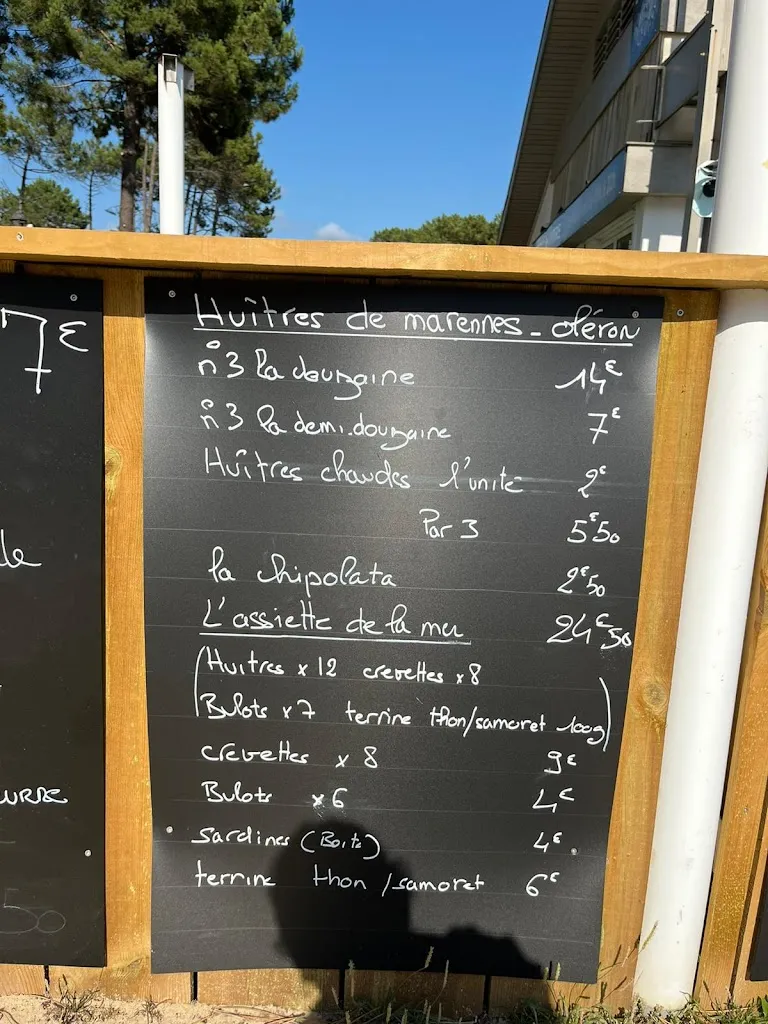 7€
Huîtres de marennes - oléron
n°3 la douzaine 14€
n°3 la demi.douzaine 7€
Huîtres chaudes l'unité 2€
Par 3 5€50
la chipolata 2€50
L'assiette de la mer 24€50
(Huitres x 12 crevettes x 8
Bulots x 7 terrine thon/samoret 100g)
crevettes x 8 9€
Bulots x 6 4€
sardines (Boite) 4€
terrine thon /samoret 6€
le
URRE
50